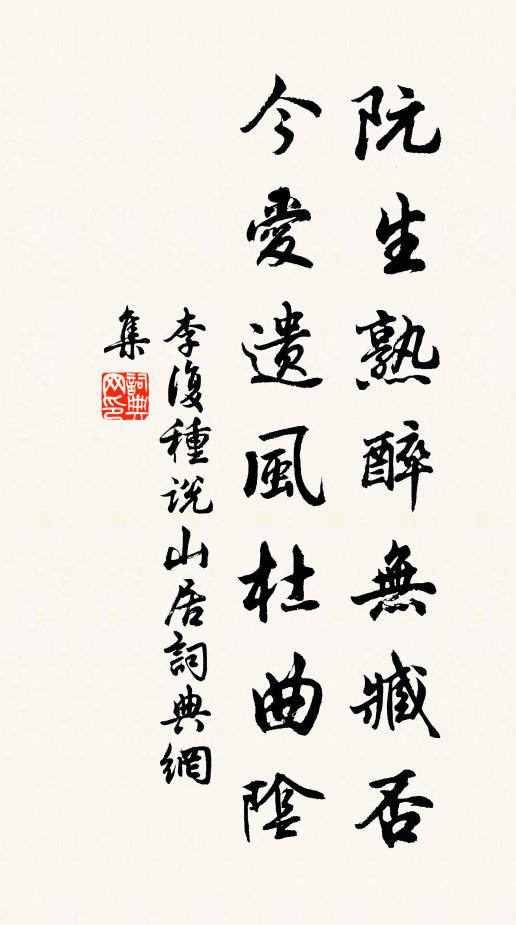 阮生熟醉無臧否
今愛遺風杜曲陰
李復種說山居詞典網
集
詞典网印